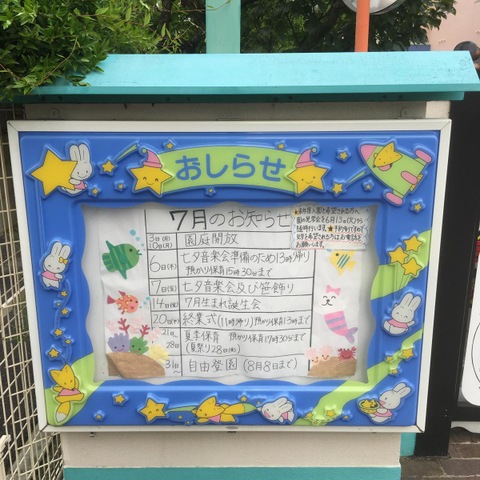 おしらせ
7月のお知らせ
3日(月)
10日(月) 園庭開放
6日(木) 七夕音楽会準備のため13時帰り
預かり保育15時30分まで
7日(金) 七夕音楽会及び笹飾り
14日(金) 7月生まれ誕生会
20日(木) 終業式(11時帰り)預かり保育13時まで
21~28 夏季保育 預かり保育17時30分まで
(夏祭り28日(金))
31~ 自由登園(8月8日まで)